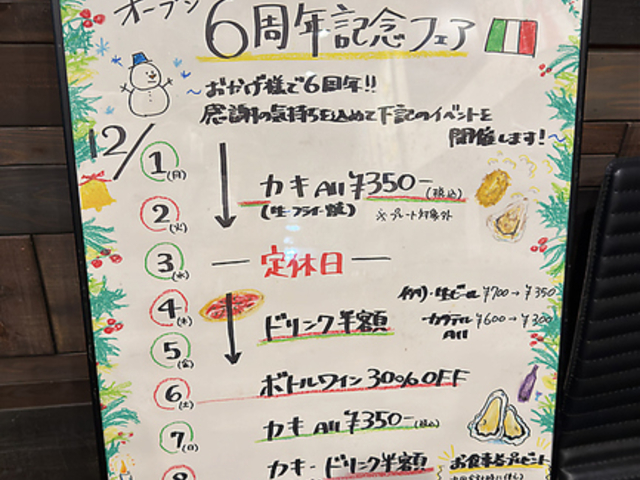 オープン
6周年記念フェア
~おかげ様で6周年!!
感謝の気持ちを込めて下記のイベントを
開催します!~
12/
1(月)
カキ All ¥350-(税込)
(生・フライ・焼) ※プレート対象外
2(火)
3(水) ー定休日ー
4(木)
ドリンク半額 (例)・生ビール ¥700→¥350
・カクテル ¥600→¥300
All
5(金)
6(土) ボトルワイン30%OFF
7(日) カキ All ¥350-(税込)
8 カキ・ドリンク半額 お食事券プレゼント